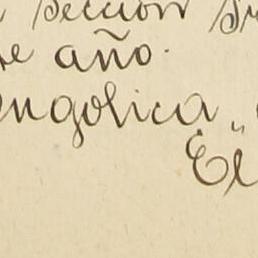 Sección
año.
angolica"
El